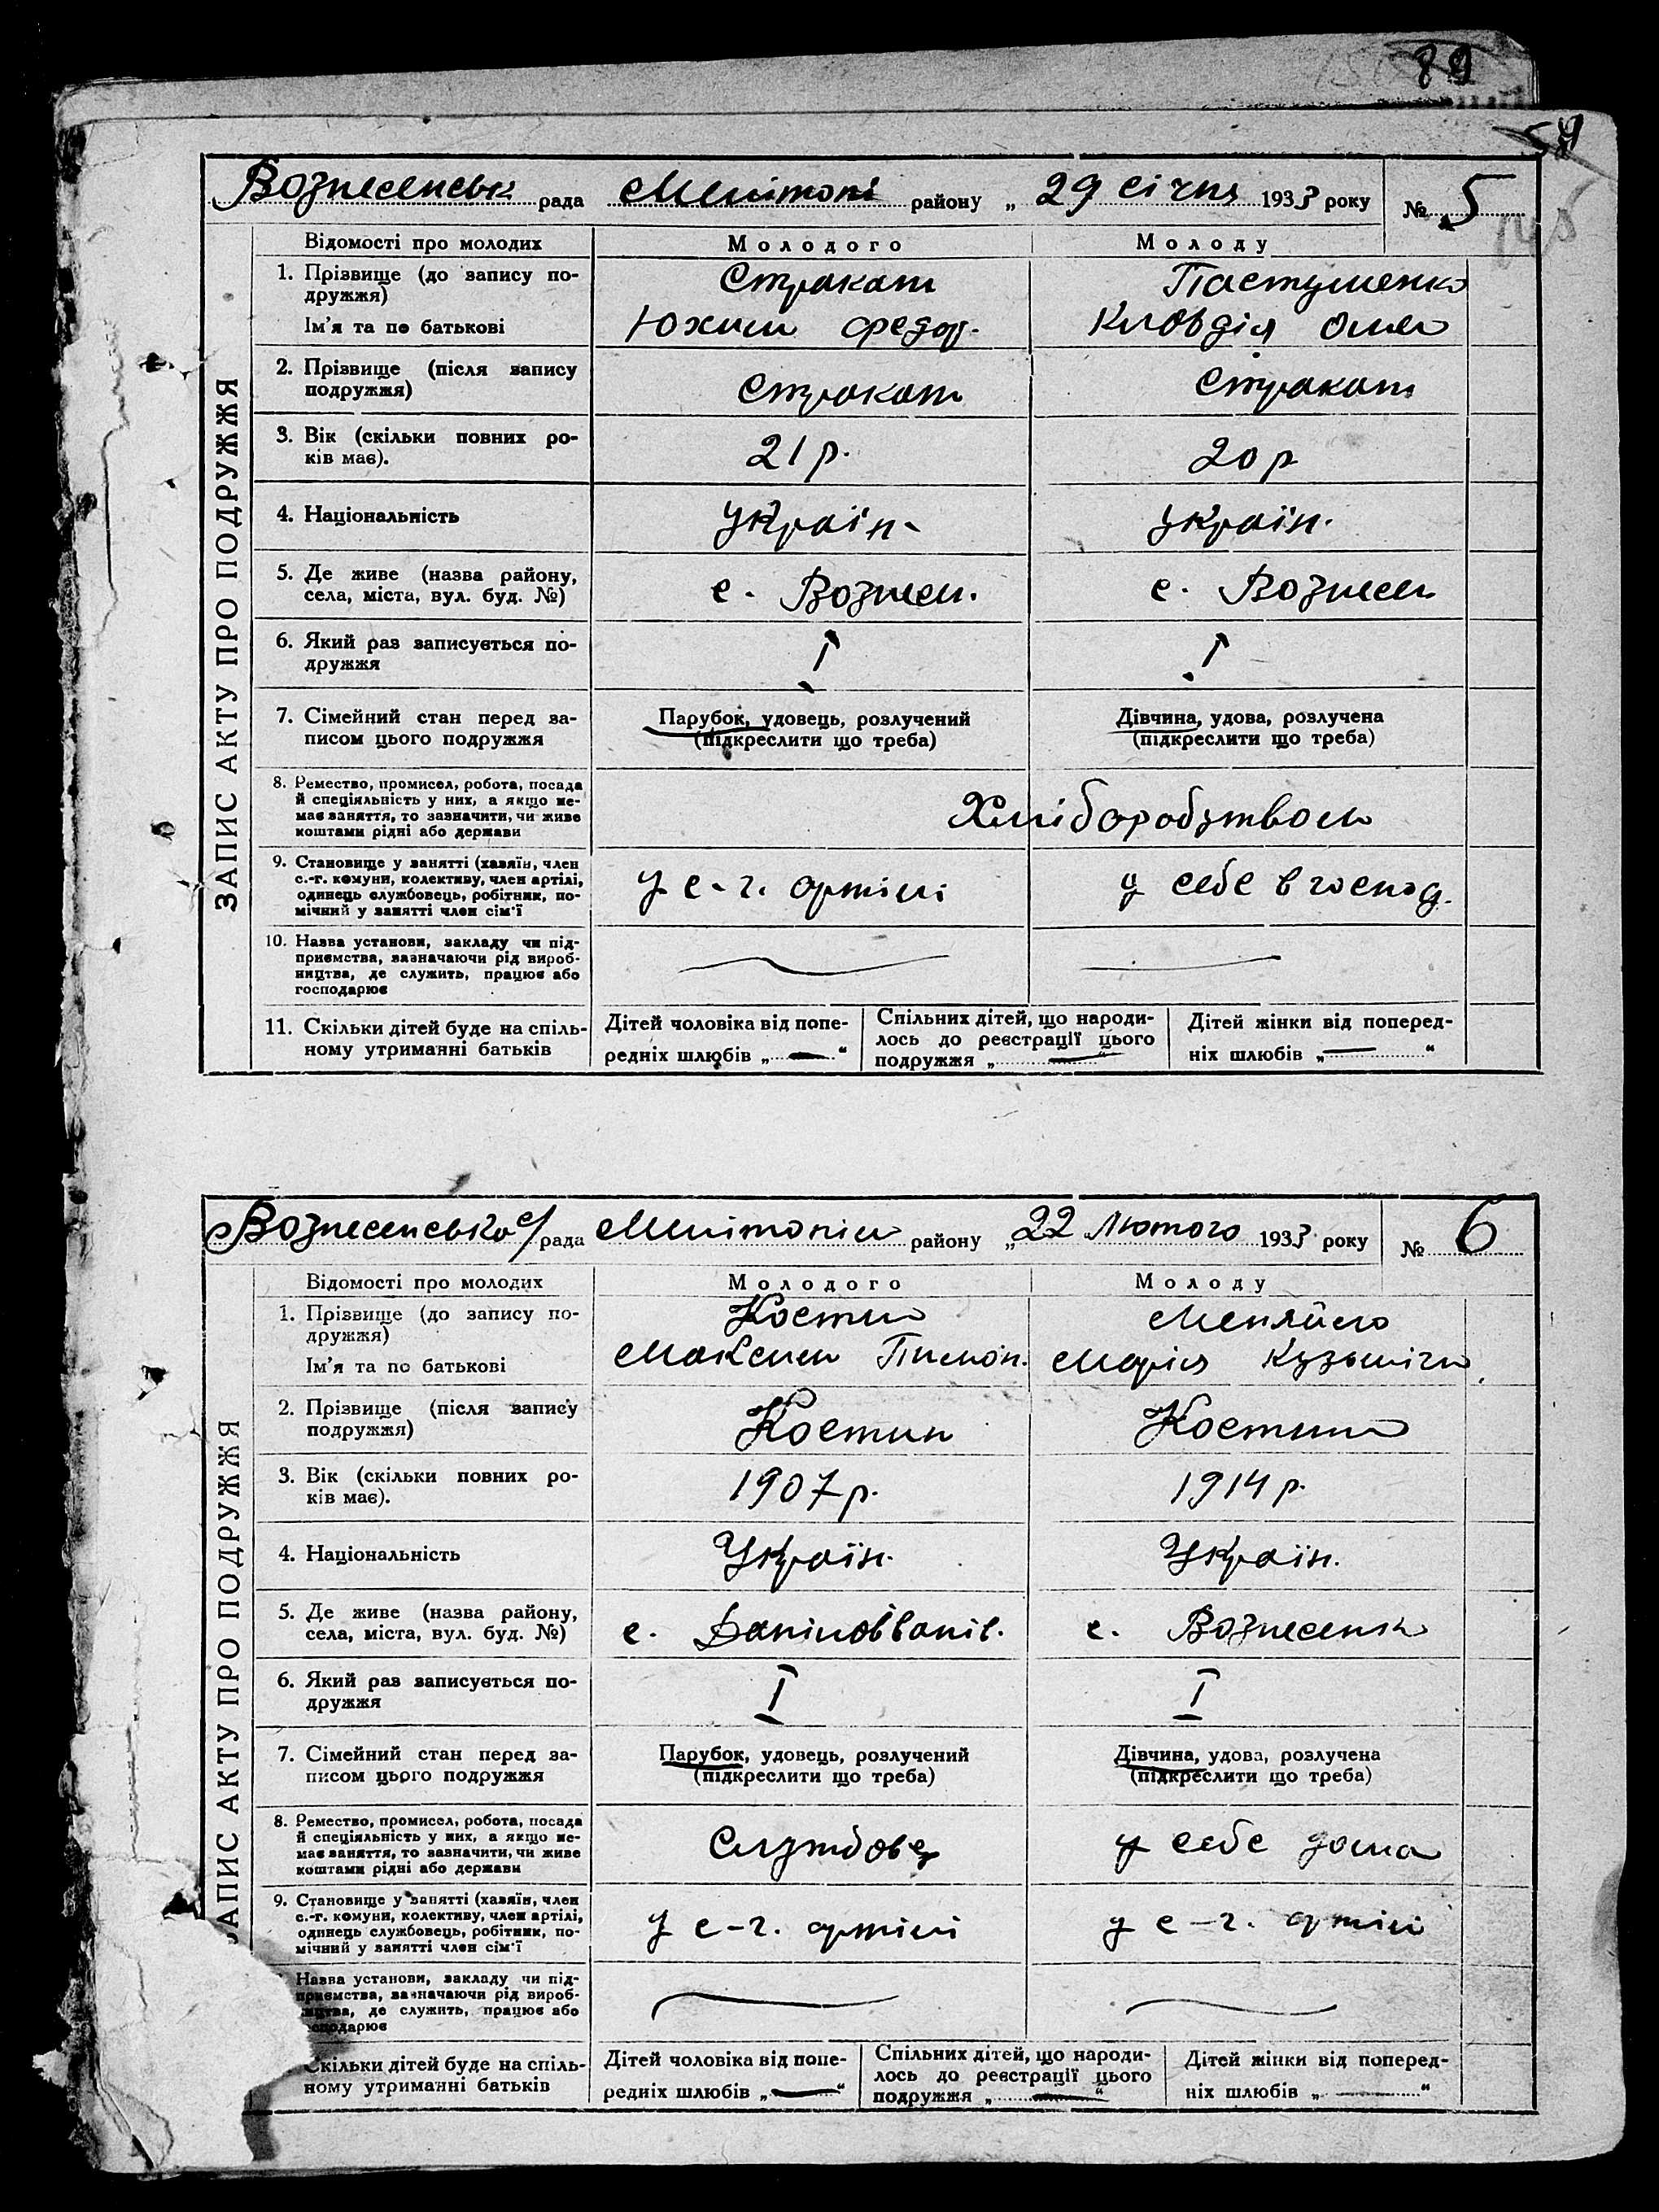 89
Вознесенськ рада Мелітопі району „ 29 січня 1933 року № 5
ЗАПИС АКТУ ПРО ПОДРУЖЖЯ
Відомості про молодих Молодого Молоду
1. Прізвище (до запису по- Стракат Пастушенко
дружжя)
Ім'я та по батькові Юхим Федор. Кловдія Омел
2. Прізвище (після запису Стракат Стракат
подружжя)
3. Вік (скільки повних ро- 21 р. 20 р
ків має).
4. Національність Україн. Україн.
5. Де живе (назва району,
села, міста, вул. буд. №) с. Вознесен. с. Вознесен
6. Який раз записується по- I I
дружжя
7. Сімейний стан перед за- Парубок, удовець, розлучений Дівчина, удова, розлучена
писом цього подружжя (підкреслити що треба) (підкреслити що треба)
8. Ремество, промисел, робота, посада
й спеціяльність у них, а якщо не- Хліборобством
має заняття, то зазначити, чи живе
коштами рідні або держави
9. Становище у занятті (хазяїн, член
с.-г. комуни, колективу, член артілі, у с-г. артілі у себе в господ.
одинець службовець, робітник, по-
мічний у занятті член сім'ї
10. Назва установи, закладу чи під-
приємства, зазначаючи рід вироб-
ництва, де служить, працює або
господарює
11. Скільки дітей буде на спіль- Дітей чоловіка від попе- Спільних дітей, що народи- Дітей жінки від поперед-
ному утриманні батьків редніх шлюбів „ — “ лось до реєстрації цього ніх шлюбів „ — “
подружжя „ — “
Вознесенсько с/рада Мелітопім району „22 Лютого 1933 року № 6
ЗАПИС АКТУ ПРО ПОДРУЖЖЯ
Відомості про молодих Молодого Молоду
1. Прізвище (до запису по- Костин Меняйло
дружжя)
Ім'я та по батькові Максим Пимон. Марія Кузьмічн
2. Прізвище (після запису Костин Костина
подружжя)
3. Вік (скільки повних ро- 1907 р. 1914 р.
ків має).
4. Національність Україн. Україн.
5. Де живе (назва району,
села, міста, вул. буд. №) с. Данілов Іванів. с. Вознесенк
6. Який раз записується по- I I
дружжя
7. Сімейний стан перед за- Парубок, удовець, розлучений Дівчина, удова, розлучена
писом цього подружжя (підкреслити що треба) (підкреслити що треба)
8. Ремество, промисел, робота, посада
й спеціяльність у них, а якщо не- Службовец у себе дома
має заняття, то зазначити, чи живе
коштами рідні або держави
9. Становище у занятті (хазяїн, член
с.-г. комуни, колективу, член артілі, у с-г. артілі у с-г. артілі
одинець службовець, робітник, по-
мічний у занятті член сім'ї
Назва установи, закладу чи під-
приємства, зазначаючи рід вироб-
ництва, де служить, працює або
господарює
Скільки дітей буде на спіль- Дітей чоловіка від попе- Спільних дітей, що народи- Дітей жінки від поперед-
ному утриманні батьків редніх шлюбів „ — “ лось до реєстрації цього ніх шлюбів „ — “
подружжя „ — “